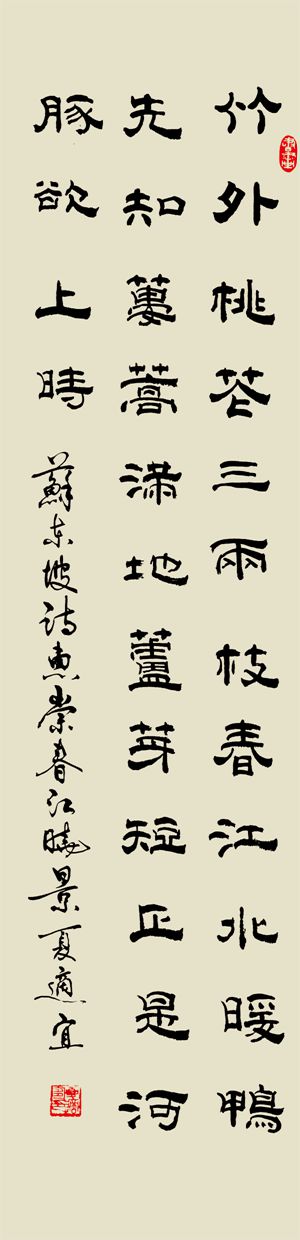 竹外桃花三兩枝春江水暖鴨
先知蔞蒿滿地蘆芽短正是河
豚欲上時
蘇東坡詩惠崇春江曉景夏適宜